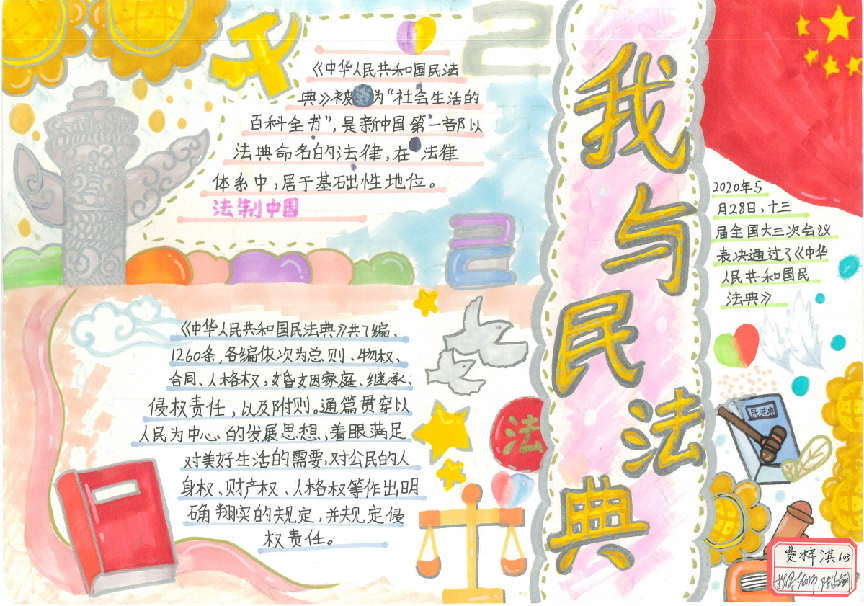 我与民法典
《中华人民共和国民法
典》被 为“社会生活的
百科全书”，是新中国第一部以
法典命名的法律，在 法律
体系中，居于基础性地位。
法制中国
2020年5
月28日，十三
届全国大三次会议
表决通过了《中华
人民共和国民
法典》
《中华人民共和国民法典》共7编、
1260条，各编依次为总则、物权、
合同、人格权、婚姻家庭、继承、
侵权责任，以及附则。通篇贯穿以
人民为中心的发展思想，着眼满足
对美好生活的需要，对公民的人
身权、财产权、人格权等作出明
确翔实的规定，并规定侵
权责任。
法
民法典